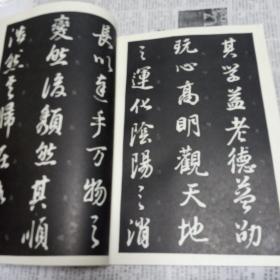 其学益老德益劭
玩心高明觀天地
之運化陰陽之消
長以達乎万物之
變然後頹然其順
浩然其歸在